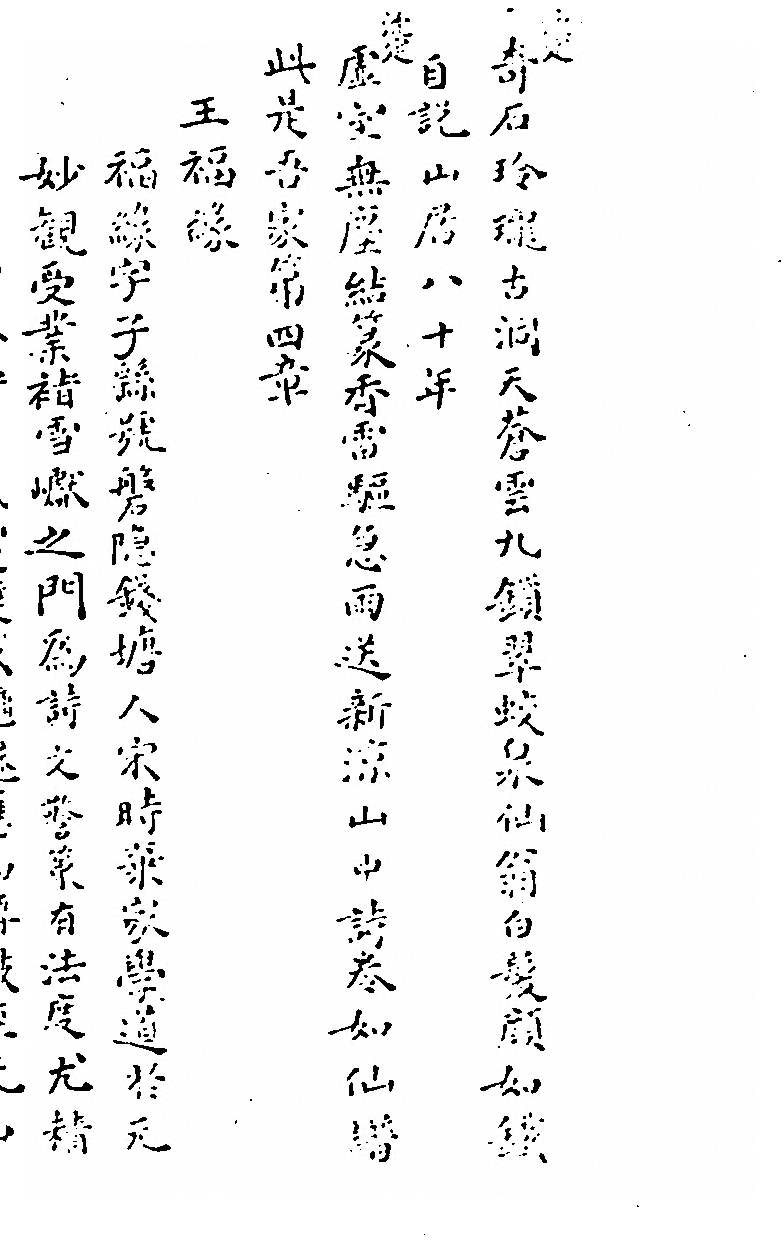 奇石玲瓏古洞天蒼雲九鎖翠蛟泉仙翁白髮顔如鐵
自説山居八十年
虛室無塵結篆香雷驅急雨送新涼山中詩卷如仙譜
此是吾家第四章
王福緣
福緣字子繇號磐隱錢塘人宋時棄家學道於元
妙觀受業褚雪巘之門爲詩文警策有法度尤精